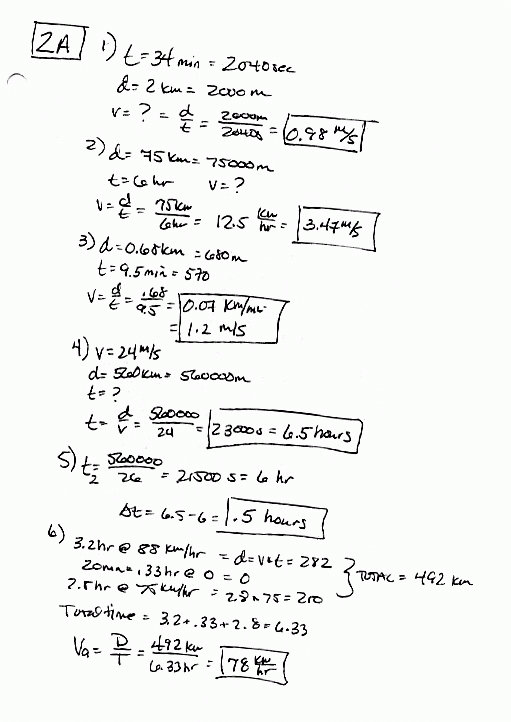 2A
1) t = 34 min = 2040 sec
d = 2 km = 2000 m
v = ? = d/t = 2000m/2040s = 0.98 m/s
2) d = 75 km = 75000 m
t = 6 hr v = ?
v = d/t = 75km/6hr = 12.5 km/hr = 3.47 m/s
3) d = 0.68 km = 680 m
t = 9.5 min = 570
v = d/t = .68/9.5 = 0.07 km/min
= 1.2 m/s
4) v = 24 m/s
d = 560 km = 560000 m
t = ?
t = d/v = 560000/24 = 23000 s = 6.5 hours
5) t2 = 560000/26 = 21500 s = 6 hr
Δt = 6.5 - 6 = .5 hours
6) 3.2 hr @ 88 km/hr = d = v*t = 282
20 min = .33 hr @ 0 = 0
2.8 hr @ 75 km/hr = 2.8 * 75 = 210
} TOTAL = 492 km
Total time = 3.2 + .33 + 2.8 = 6.33
Va = D/T = 492 km/6.33 hr = 78 km/hr